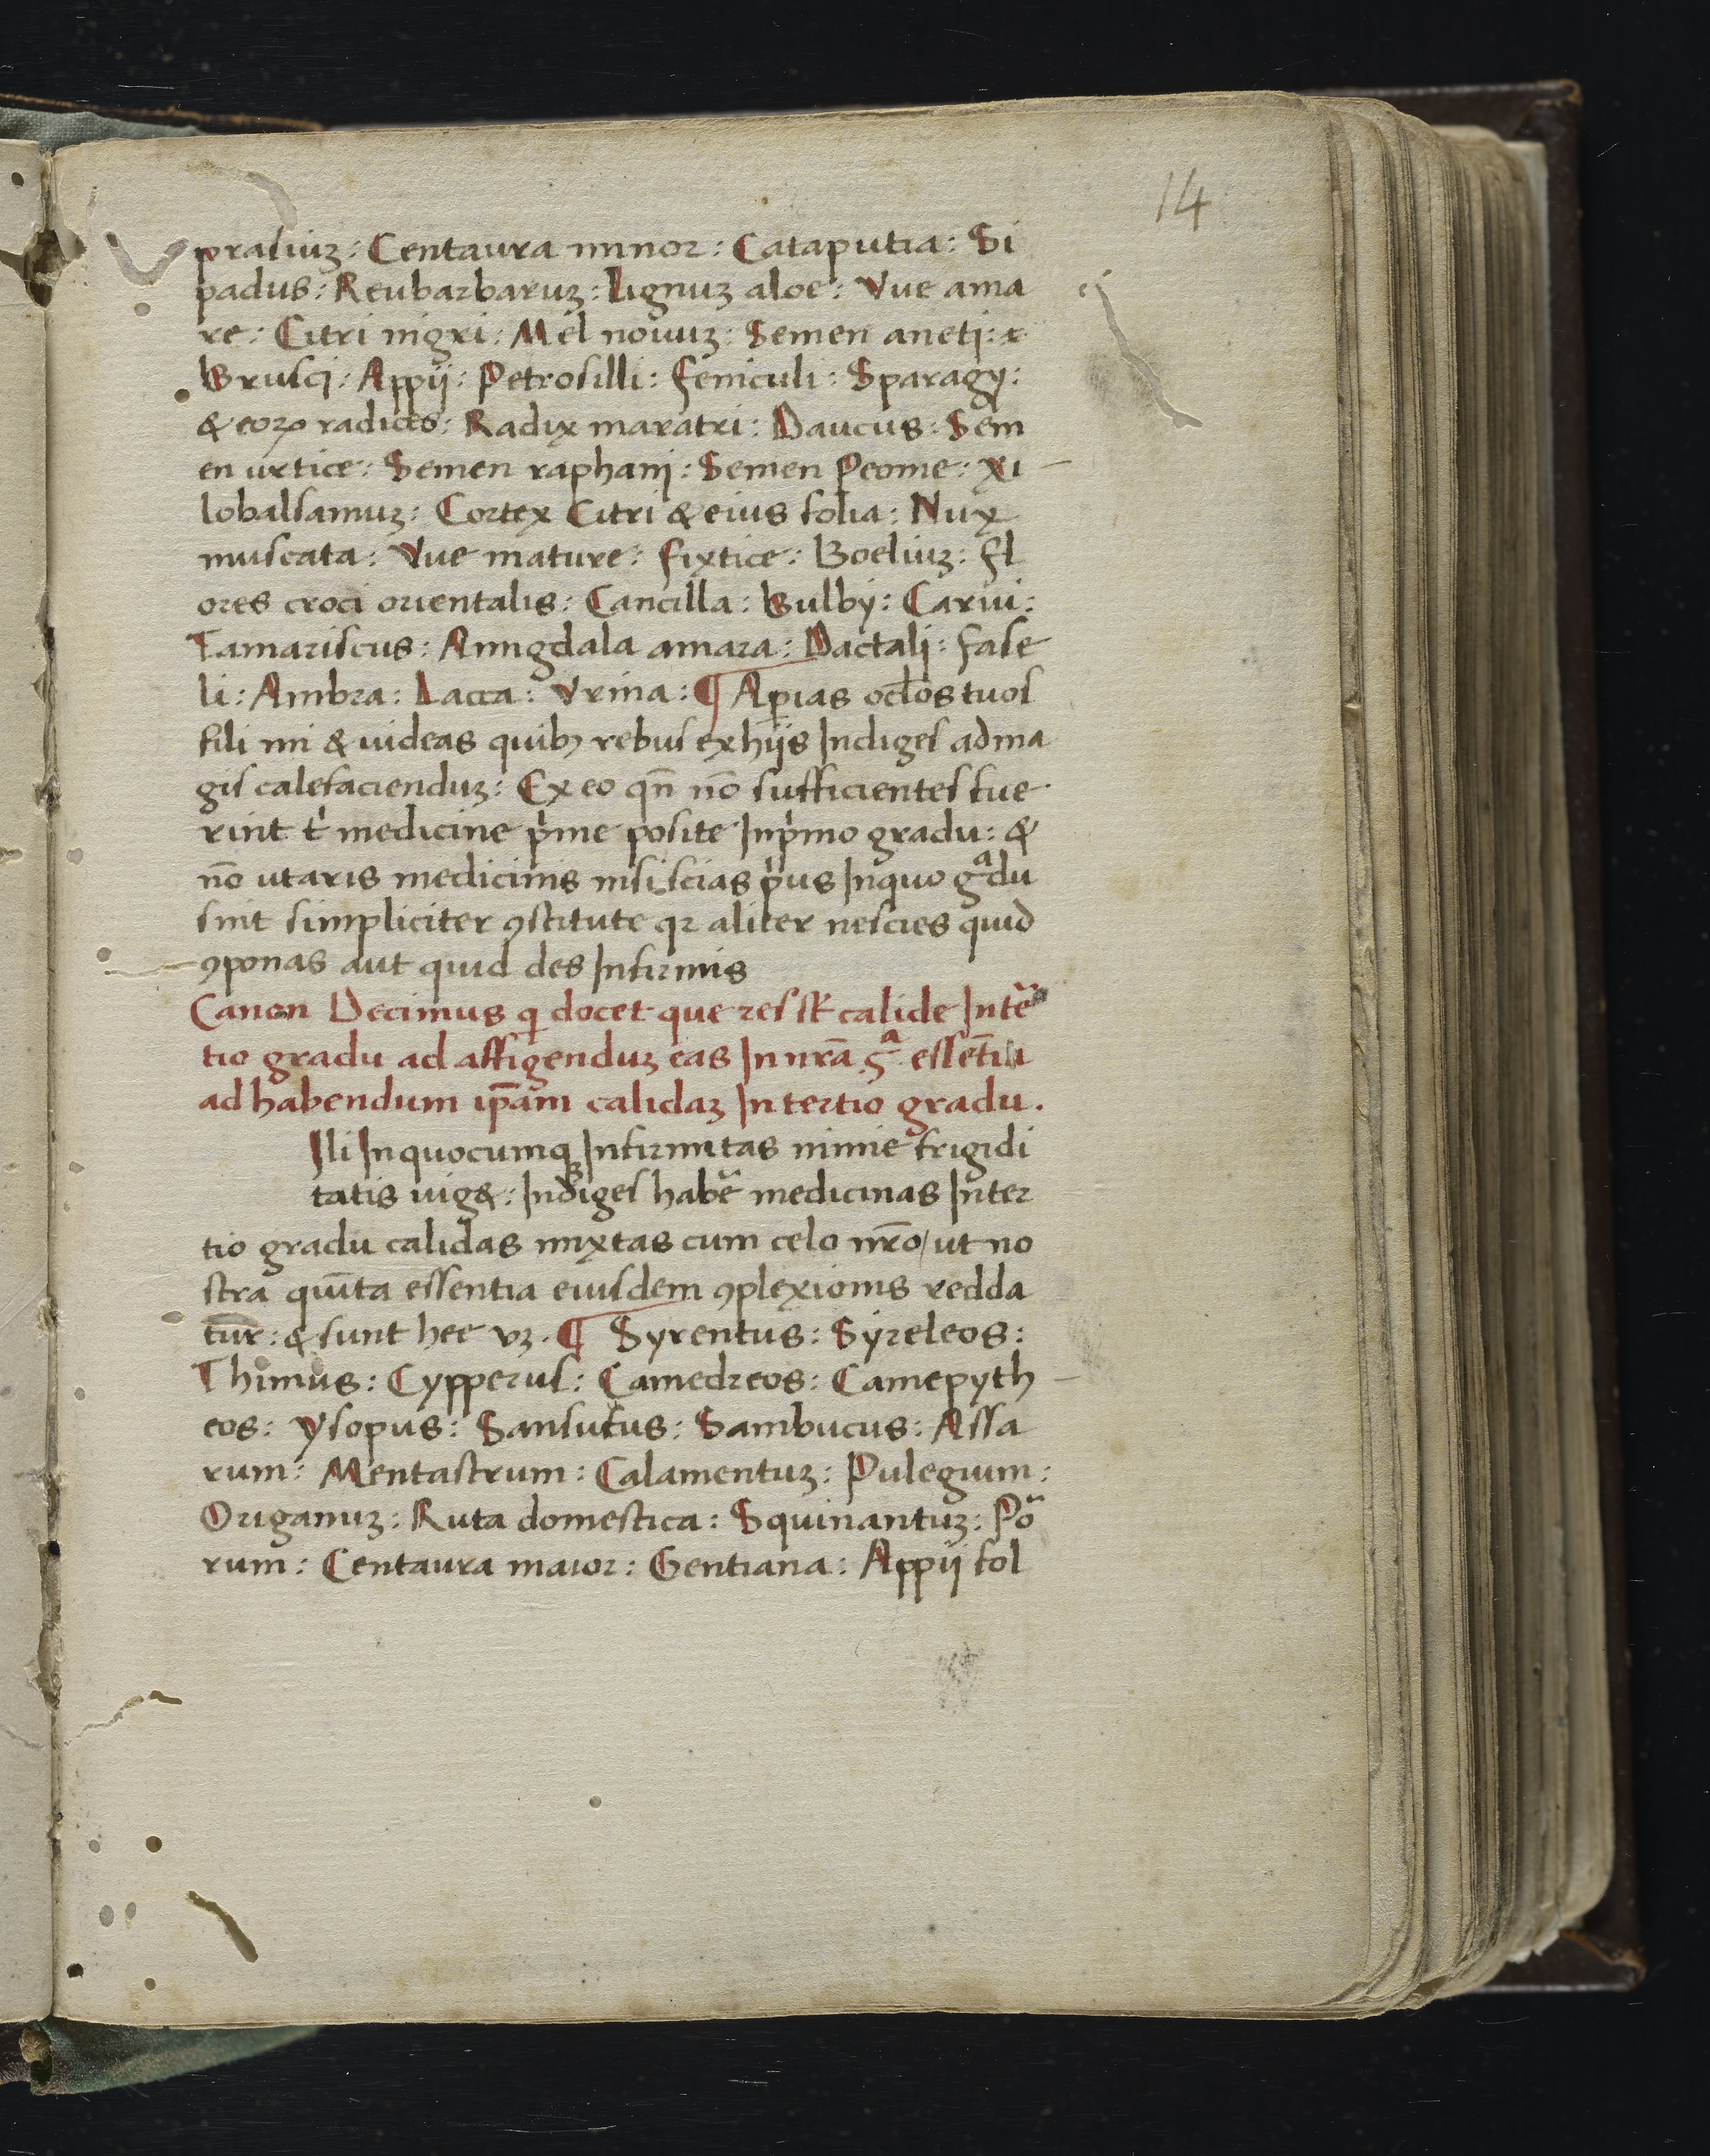 14
prasiuꝫ: Centaura minor: Cataputia: Si
padus: Reubarbaruꝫ: Lignuꝫ aloe: Vue ama
re: Citri nigri: Mel nouuꝫ: Semen aneti: 
Brusci: Appij: Petrosilli: feniculi: Sparagy:
& eoꝝ radices: Radix maratri: Daucus: Sem
en urtice: Semen raphani: Semen Peonie: Xi
lobalsamuꝫ: Cortex Citri & eius folia: Nux
muscata: Vue mature: fixtice: Boeliuꝫ: fl
ores croci orientalis: Cancilla: Bulby: Carui:
Tamariscus: Amigdala amara: Dactali: fase
li: Ambra: Lacca: Vrina: ¶ Aꝑias oclos tuos
fili mi & uideas quibꝫ rebus ex hijs Indiges ad ma
gis calefacienduꝫ: Ex eo qn̄ nō sufficientes fue
rint t' medicine p'me posite In p'mo gradu: &
nō utaris medicinis nisi scias p'us In quo gᵃdu
sint simpliciter ꝯstitute qꝛ aliter nescies quid
ꝯponas aut quid des Infirmis
Canon Decimus q docet que res st̄ calide In tē
tio gradu ad affigenduꝫ eas In nrā .5ᵃ. essētia
ad habendum ip̄am calidaꝫ In tertio gradu.
Ili In quocumqꝫ Infirmitas nimie frigidi
tatis uig&: Indiges habē medicinas In ter
tio gradu calidas mixtas cum celo nr̄o / ut no
stra quīta essentia eiusdem ꝯplexionis redda
tur̄: & sunt hee vꝫ. ¶ Syrentus: Syreleos:
Thimus: Cypperus: Camedreos: Camepyth
eos: ysopus: Sansucus: Sambucus: Assa
rum: Mentastrum: Calamentuꝫ: Pulegium:
Origanuꝫ: Ruta domestica: Squinantuꝫ: Po᷒
rum: Centaura maior: Gentiana: Appij fol